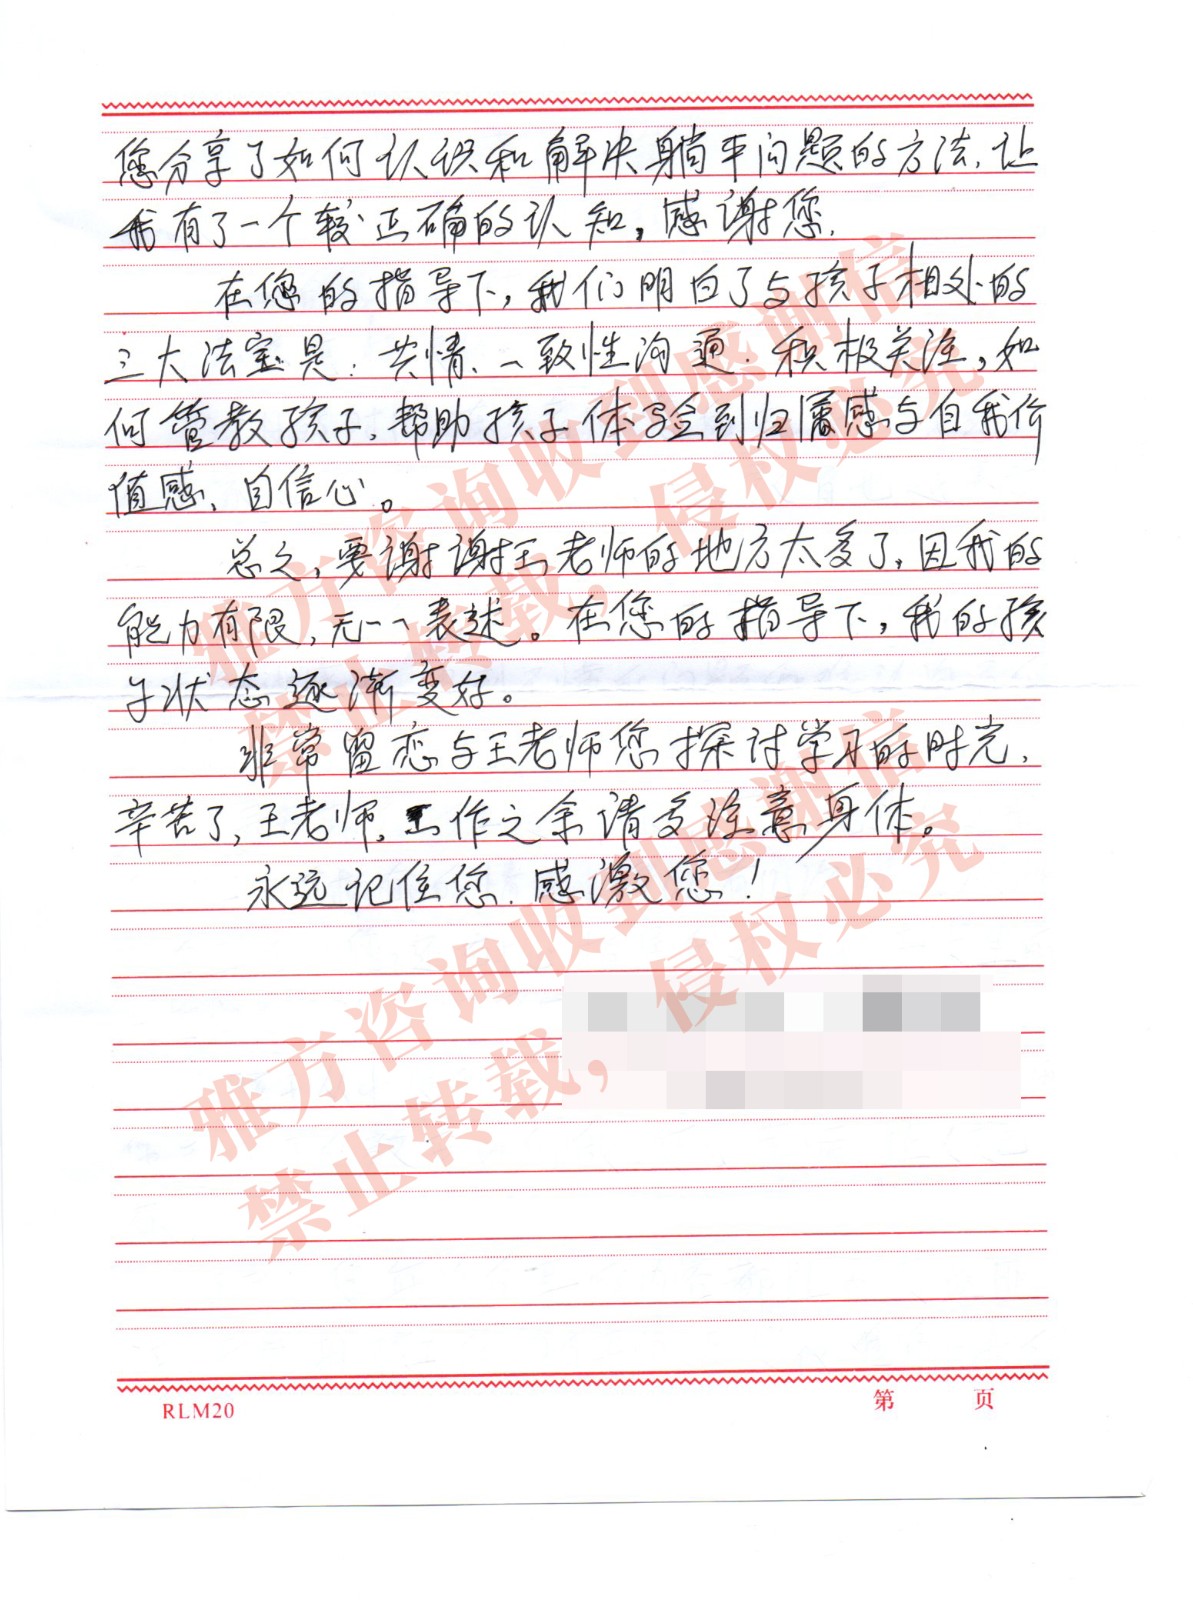 您分享了如何认识和解决躺平问题的方法,让
我有了一个较正确的认知,感谢您.
在您的指导下,我们明白了与孩子相处的
三大法宝是:共情、一致性沟通.积极关注,如
何管教孩子,帮助孩子体验到归属感与自我价
值感、自信心。
总之,要谢谢王老师的地方太多了,因我的
能力有限,无一一表述。在您的指导下,我的孩
子状态逐渐变好。
非常留恋与王老师您探讨学习的时光,
辛苦了,王老师,工作之余请多注意身体。
永远记住您.感激您!
雅方咨询收到感谢信
禁止转载,侵权必究
雅方咨询收到感谢信
禁止转载,侵权必究
RLM20
第 页